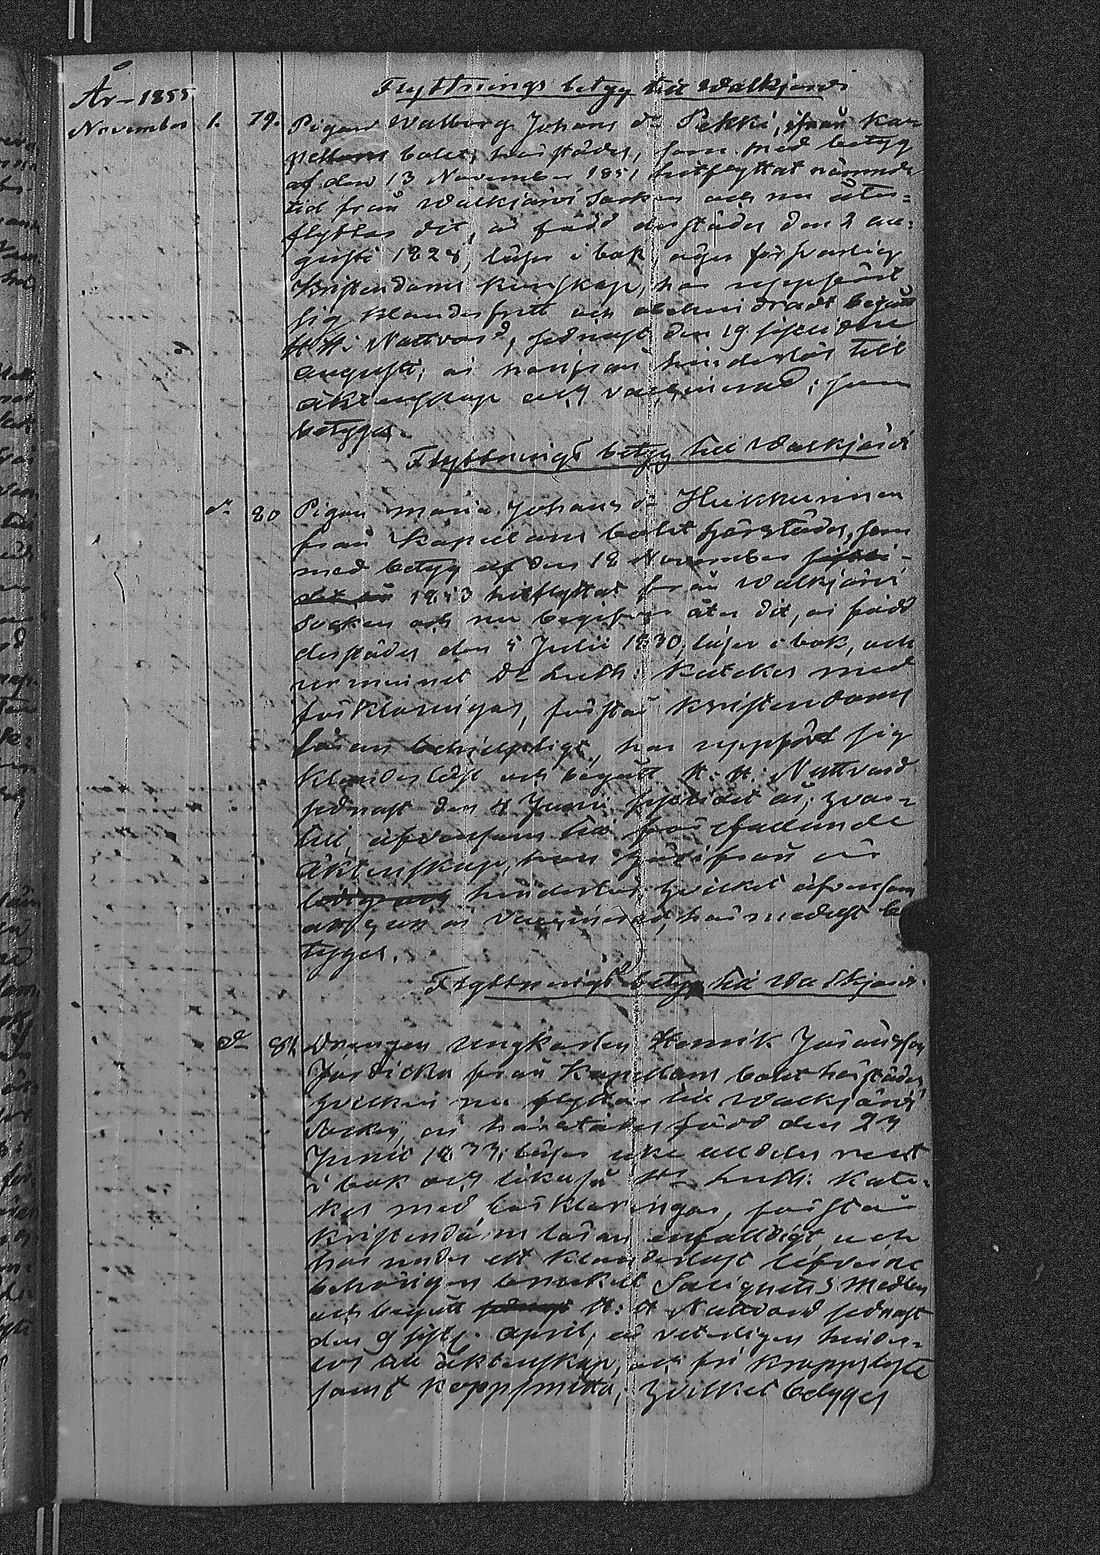 Flyttnings betyg till Walkjärvi
År 1855
November 1. 79. Pigan Walborg Johans dr Pekki, från Ka-
pellans bolet härstädes, som med betyg
af den 13 November 1851 hitflyttat nämnde
tid från Walkjärvi Socken och nu åter-
flyttar dit, är född derstädes den 2 au-
gusti 1828, läser i bok, äger försvarlig
Kristendoms kunskap, har uppfört
sig klanderfritt och oklandradt begått
H. H. Nattvard, sednast den 19 sistlidne
augusti; är härifrån hinderlös till
äktenskap och vaccinerad; som
betygas.
Flyttnings betyg till Walkjärvi
dr 80 Pigan Maria Johans dr Hukkurinen
från Kapellans bolet härstädes, som
med betyg af den 18 November
1853 hitflyttat från Walkjärvi
Socken och nu begifver åter dit, är född
derstädes den 5 Julii 1830, läser i bok, och
utur minnet Dr Luth: Kateches med
förklaringar, förstår Kristendoms
läran behielpligt, har uppfört sig
klanderlöst och begått H: H: Nattvard
sednast den 4 Junii sistlidet år; hvar-
till äfvensom till förefallande
äktenskap, hon härifrån är
hinderlös, hvilket äfvensom
att hon är Vaccinerad, härmedelst be-
tygas.
Flyttnings betyg till Walkjärvi
dr 81 Drengen ungkarlen Henrik Göransson
från Kapellans bolet härstädes,
hvilken nu flyttar till Walkjärvi
Socken, är härstädes född den 24
Junii 1833; läser icke alldeles rent
i bok och likaså Dr Luth: Kate-
kes med förklaringar, förstår
Kristendoms läran enfaldigt och
har under ett klanderlöst lefverne
behörigen brukat Salighets medlen
och begått H: H Nattvard sednast
den 9 sistl. April; är veterligen hinder-
lös till äktenskap, och fri kroppslyte
samt koppsmitta; hvilket betygas